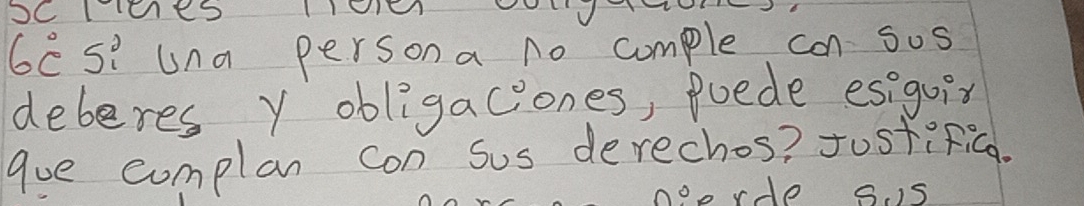 se tienes
6¿ Si una persona no comple con sus
deberes y obligaciones, puede esiguir
que cumplan con sus derechos? Justifica.
pierde sus